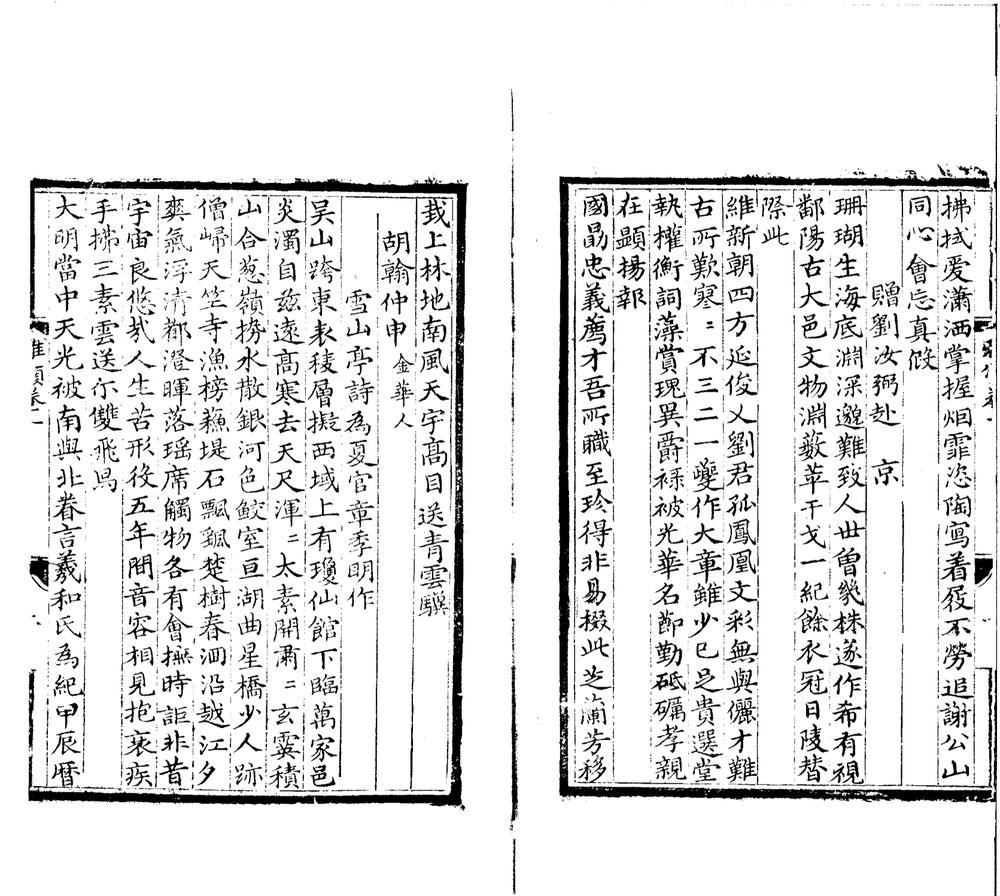 拂拭爱瀟洒掌握烟霏恣陶寫着屐不勞追謝公山
同心會忘真假
贈劉汝弼赴 京
珊瑚生海底淵深邈難致人世曾幾株遂作希有視
鄱陽古大邑文物淵藪萃干戈一紀餘衣冠日陵替
際此
維新朝四方延俊乂劉君孤鳳凰文彩無與儷才難
古所歎寒〻不三二一夔作大章雖少已足貴選堂
執權衡詞藻賞瑰異爵祿被光華名節勤砥礪孝親
在顯揚報
國勗忠義薦才吾所職至珍得非易掇此芝蘭芳移
栽上林地南風天宇高目送青雲驥
胡翰仲申 金華人
雪山亭詩為夏官章季明作
吴山跨東表稜層擬西域上有瓊仙館下臨萬家邑
炎濁自兹遠高寒去天尺渾〻太素開肅〻玄霙積
山合葱嶺撈水散銀河色鮫室亘湖曲星橋少人跡
僧歸天竺寺漁榜蘇堤石飄飄楚樹春洄沿越江夕
奕氣浮清都澄暉落瑶席觸物各有會撫時詎非昔
宇宙良悠哉人生苦形役五年閒音容相見抱衰疾
手揥三素雲送尔雙飛舄
大明當中天光被南與北眷言羲和氏為紀甲辰曆